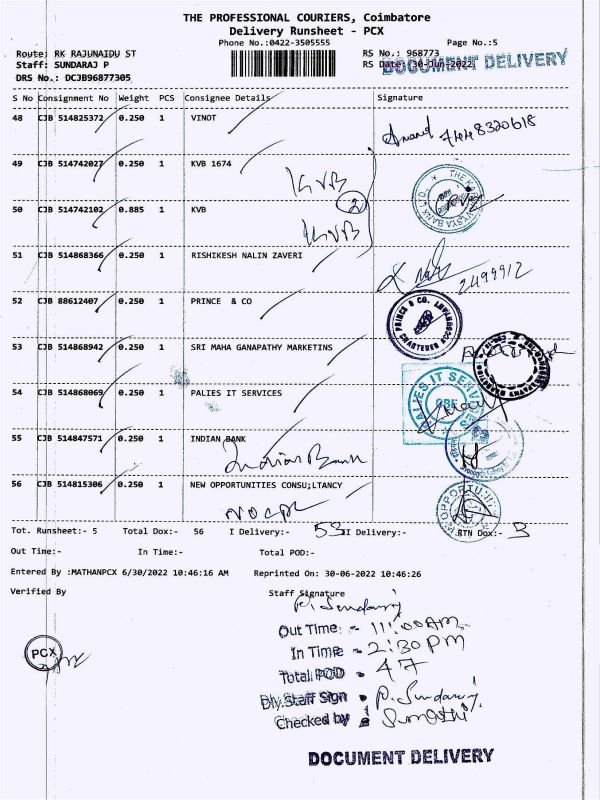 THE PROFESSIONAL COURIERS, Coimbatore
Delivery Runsheet - PCX
Phone No.:0422-3505555 Page No.:5
Route: RK RAJUNAIDU ST RS No.: 968773
Staff: SUNDARAJ P RS Date: 30-Jun-2022
DOCUMENT DELIVERY
DRS No.: DCJB96877305
S No Consignment No Weight PCS Consignee Details Signature
48 CJB 514825372 0.250 1 VINOT
Anand
49 CJB 514742027 0.250 1 KVB 1674
KVB
2
50 CJB 514742102 0.885 1 KVB
KVB
51 CJB 514868366 0.250 1 RISHIKESH NALIN ZAVERI
2499912
52 CJB 88612407 0.250 1 PRINCE & CO
PRINCE & CO. CHARTERED ACCOUNTANTS
53 CJB 514868942 0.250 1 SRI MAHA GANAPATHY MARKETINS
54 CJB 514868069 0.250 1 PALIES IT SERVICES
PALIES IT SERVICES
CBE
55 CJB 514847571 0.250 1 INDIAN BANK
Indian Bank
56 CJB 514815306 0.250 1 NEW OPPORTUNITIES CONSU;LTANCY
Tot. Runsheet:- 5 Total Dox:- 56 I Delivery:- 53 II Delivery:- RTN Dox:- 3
Out Time:- In Time:- Total POD:-
Entered By :MATHANPCX 6/30/2022 10:46:16 AM Reprinted On: 30-06-2022 10:46:26
Verified By Staff Signature
P. Sundaraj
Out Time - 11:00 AM
PCX
In Time - 2:30 PM
Total POD - 47
Dly.Staff Sign - P. Sundaraj
Checked by - Sumathi
DOCUMENT DELIVERY